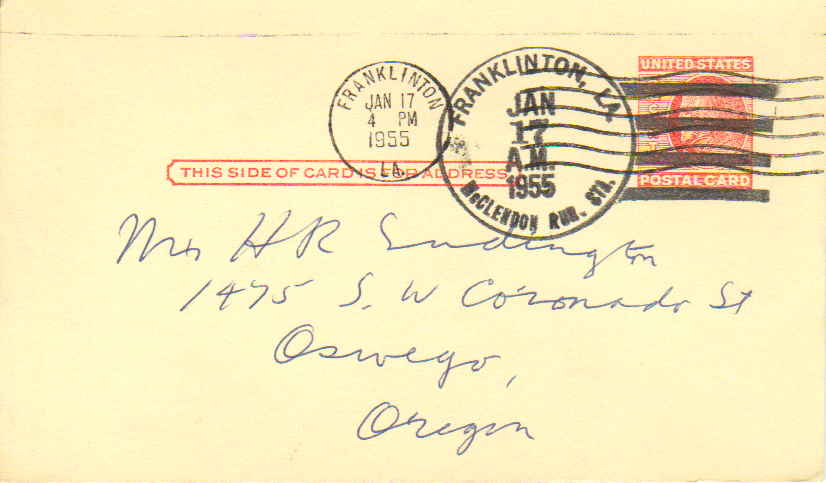 UNITED STATES
POSTAL CARD
FRANKLINTON
JAN 17
4 PM
1955
LA.
FRANKLINTON, LA.
JAN
17
A.M.
1955
McCLENDON RUR. STA.
THIS SIDE OF CARD IS FOR ADDRESS
Mrs H R
1475 S. W Coronado St
Oswego,
Oregon